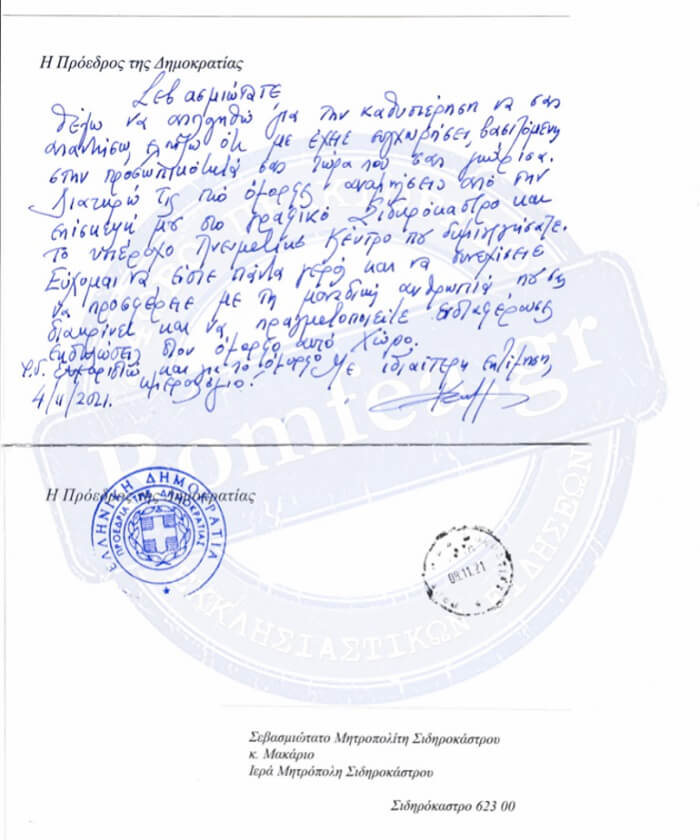 Η Πρόεδρος της Δημοκρατίας
Σεβασμιώτατε
θέλω να απολογηθώ για την καθυστέρηση να σας
απαντήσω, ελπίζω ότι με έχετε συγχωρήσει, βασιζόμενη
στην προσωπικότητά σας τώρα που σας γνώρισα.
Διατηρώ τις πιο όμορφες αναμνήσεις από την
επίσκεψή μου στο γραφικό Σιδηρόκαστρο και
το υπέροχο Πνευματικό Κέντρο που δημιουργήσατε.
Εύχομαι να είστε πάντα γερός και να συνεχίσετε
να προσφέρετε με τη μοναδική ανθρωπιά που σας
διακρίνει και να πραγματοποιείτε ενδιαφέρουσες
εκδηλώσεις στον όμορφο αυτό χώρο.
Υ.Γ. Ευχαριστώ και για το όμορφο Με ιδιαίτερη εκτίμηση,
ημερολόγιο.
4/11/2021.
Η Πρόεδρος της Δημοκρατίας
ΕΛΛΗΝΙΚΗ ΔΗΜΟΚΡΑΤΙΑ
ΠΡΟΕΔΡΙΑ ΤΗΣ ΔΗΜΟΚΡΑΤΙΑΣ
09.11.21
Romfea.gr
ΕΚΚΛΗΣΙΑΣΤΙΚΩΝ ΕΙΔΗΣΕΩΝ
Σεβασμιώτατο Μητροπολίτη Σιδηροκάστρου
κ. Μακάριο
Ιερά Μητρόπολη Σιδηροκάστρου
Σιδηρόκαστρο 623 00